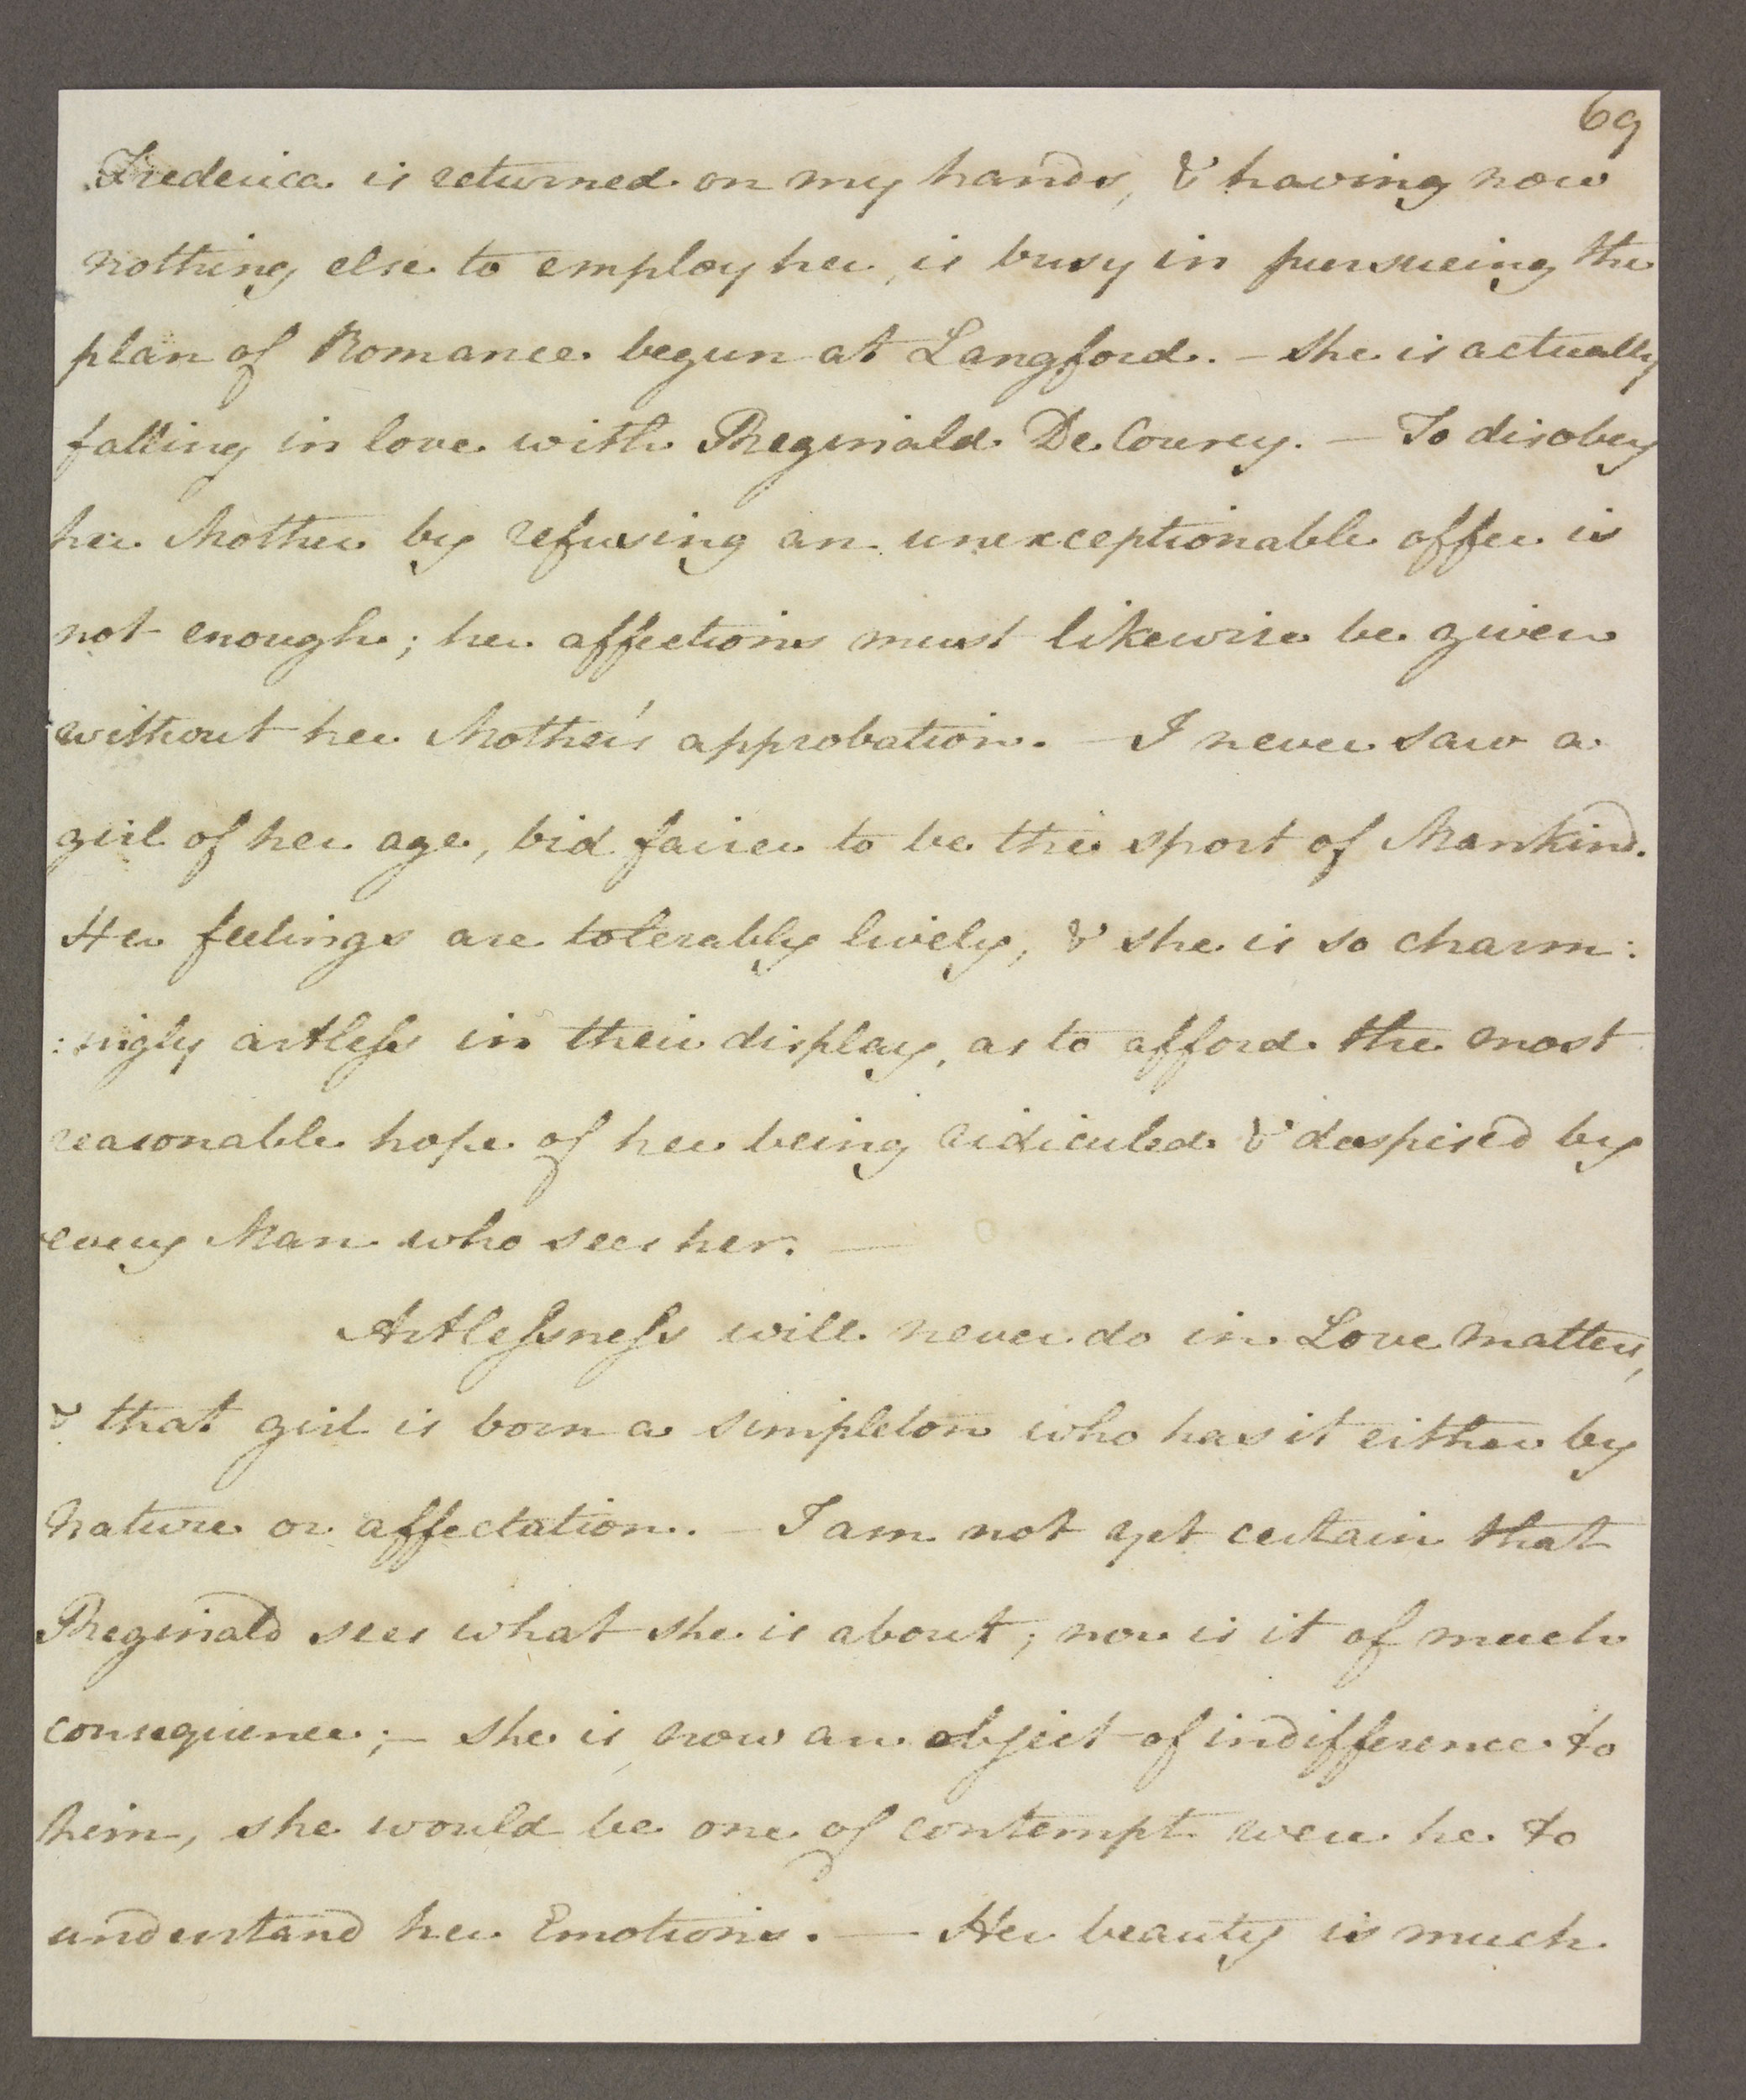 69
Frederica is returned on my hands, & having now
nothing else to employ her, is busy in pursueing the
plan of Romance begun at Langford. – She is actually
falling in love with Reginald De Courcy. – To disobey
her Mother by refusing an unexceptionable offer is
not enough; her affections must likewise be given
without her Mother's approbation. – I never saw a
girl of her age, bid fairer to be the sport of Mankind.
Her feelings are tolerably lively, & she is so charm:
:ingly artleſs in their display, as to afford the most
reasonable hope of her being ridiculed & despised by
every Man who sees her. —
Artleſsneſs will never do in Love matters,
& that girl is born a simpleton who has it either by
nature or affectation. – I am not yet certain that
Reginald sees what she is about; nor is it of much
consequence; – she is now an object of indifference to
him, she would be one of contempt were he to
understand her Emotions. — Her beauty is much